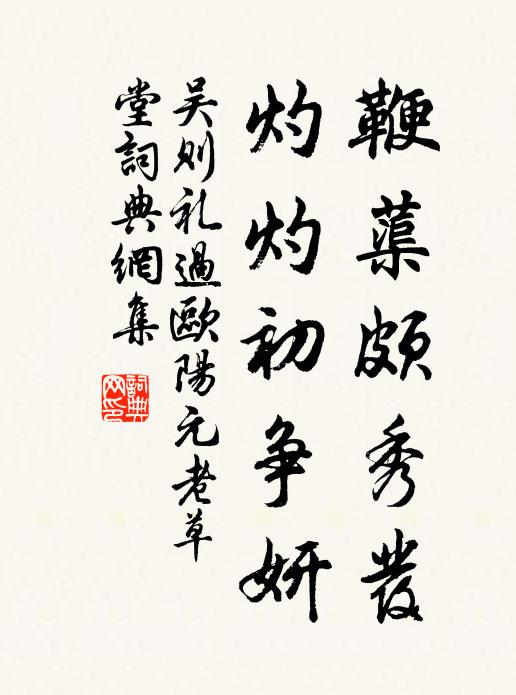 鞭蕖頗秀發
灼灼初争妍
吴则礼過歐陽元老草
堂詞典網集
詞典网印